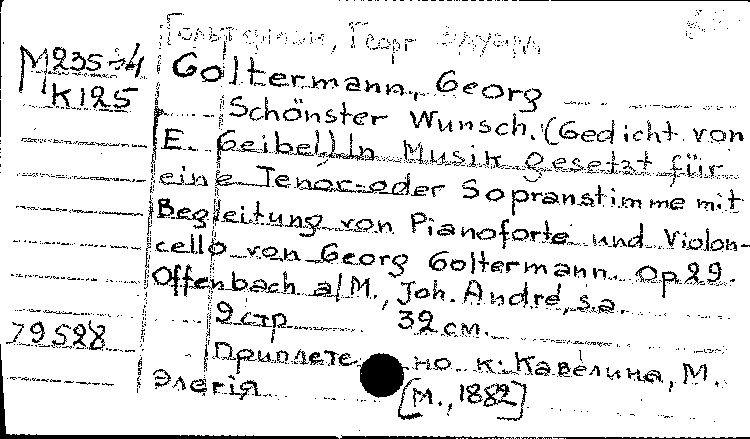 Гольтерман, Георг Эдуард
M235-4 Goltermann, Georg
K125
Schönster Wunsch. (Gedicht von
E. Geibel) In Musik gesetzt für
eine Tenor-oder Sopranstimme mit
Begleitung von Pianoforte und Violon-
cello von Georg Goltermann. Op 29.
Offenbach a/M., Joh. André, s.a.
9 стр 32 см.
79528
Приплетено к: Кавелина, М.
Элегія [М., 1882]